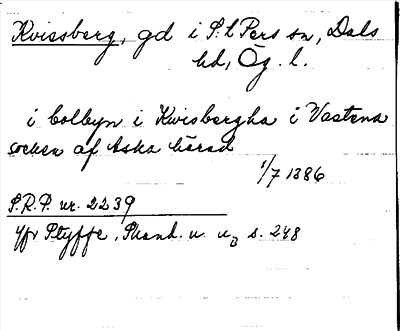 Kvissberg, gd i S:t Pers sn, Dals
hd, Ög. l.
i bolbyn i Kwisbergha i Vastena
socken af Aska härad
1/7 1386
S.R.P. nr. 2239
jfr Styffe, Skand. u. u3 s. 248